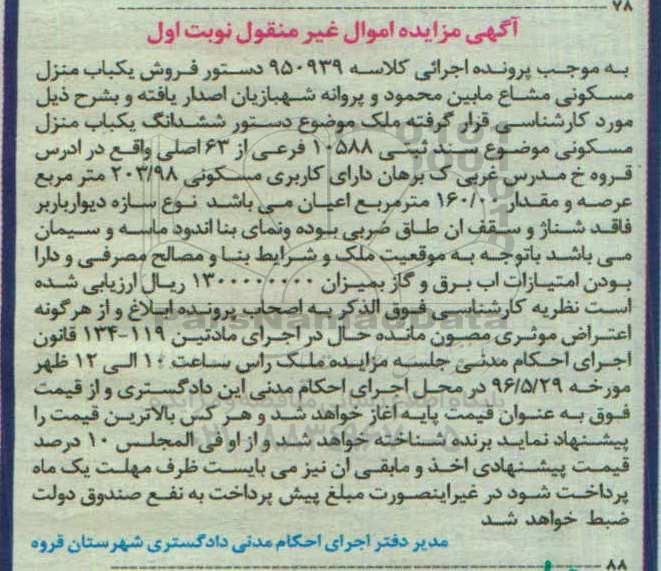 ۷۸
آگهی مزایده اموال غیر منقول نوبت اول
به موجب پرونده اجرائی کلاسه ۹۵۰۹۳۹ دستور فروش یکباب منزل
مسکونی مشاع مابین محمود و پروانه شهبازیان اصدار یافته و بشرح ذیل
مورد کارشناسی قرار گرفته ملک موضوع دستور ششدانگ یکباب منزل
مسکونی موضوع سند ثبتی ۱۰۵۸۸ فرعی از ۶۳ اصلی واقع در ادرس
قروه خ مدرس غربی ک برهان دارای کاربری مسکونی ۲۰۳/۹۸ متر مربع
عرصه و مقدار ۱۶۰/۰۰ مترمربع اعیان می باشد نوع سازه دیوارباربر
فاقد شناژ و سقف ان طاق ضربی بوده ونمای بنا اندود ماسه و سیمان
می باشد باتوجه به موقعیت ملک و شرایط بنا و مصالح مصرفی و دارا
بودن امتیازات اب برق و گاز بمیزان ۱۳۰۰۰۰۰۰۰۰ ریال ارزیابی شده
است نظریه کارشناسی فوق الذکر به اصحاب پرونده ابلاغ و از هرگونه
اعتراض موثری مصون مانده حال در اجرای مادتین ۱۱۹-۱۳۴ قانون
اجرای احکام مدنی جلسه مزایده ملک راس ساعت ۱۰ الی ۱۲ ظهر
مورخه ۹۶/۵/۲۹ در محل اجرای احکام مدنی این دادگستری و از قیمت
فوق به عنوان قیمت پایه اغاز خواهد شد و هر کس بالاترین قیمت را
پیشنهاد نماید برنده شناخته خواهد شد و از او فی المجلس ۱۰ درصد
قیمت پیشنهادی اخذ و مابقی ان نیز می بایست ظرف مهلت یک ماه
پرداخت شود در غیراینصورت مبلغ پیش پرداخت به نفع صندوق دولت
ضبط خواهد شد
مدیر دفتر اجرای احکام مدنی دادگستری شهرستان قروه
۸۸